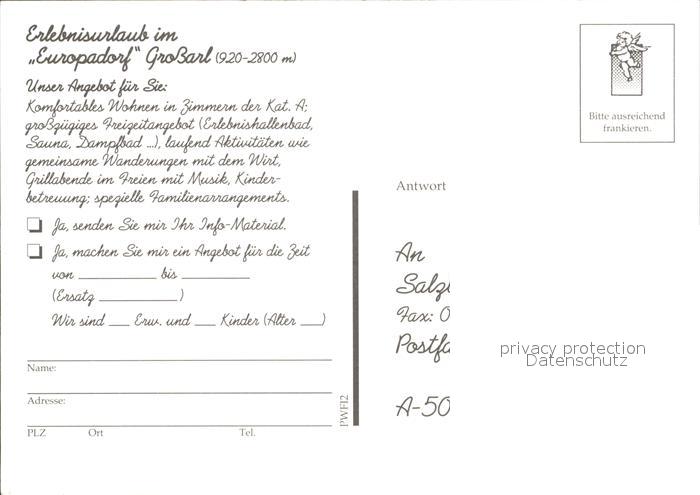 Erlebnisurlaub im
„Europadorf“ Großarl (920-2800 m)
Unser Angebot für Sie:
Komfortables Wohnen in Zimmern der Kat. A;
großzügiges Freizeitangebot (Erlebnishallenbad,
Sauna, Dampfbad ...), laufend Aktivitäten wie
gemeinsame Wanderungen mit dem Wirt,
Grillabende im Freien mit Musik, Kinder-
betreuung; spezielle Familienarrangements.
Ja, senden Sie mir Ihr Info-Material.
Ja, machen Sie mir ein Angebot für die Zeit
von ___ bis ___
(Ersatz ___)
Wir sind ___ Erw. und ___ Kinder (Alter ___)
Name:
Adresse:
PLZ Ort Tel.
PWF12
Bitte ausreichend
frankieren.
Antwort
An
Salz
Fax: 0
Postfa
A-50
privacy protection
Datenschutz